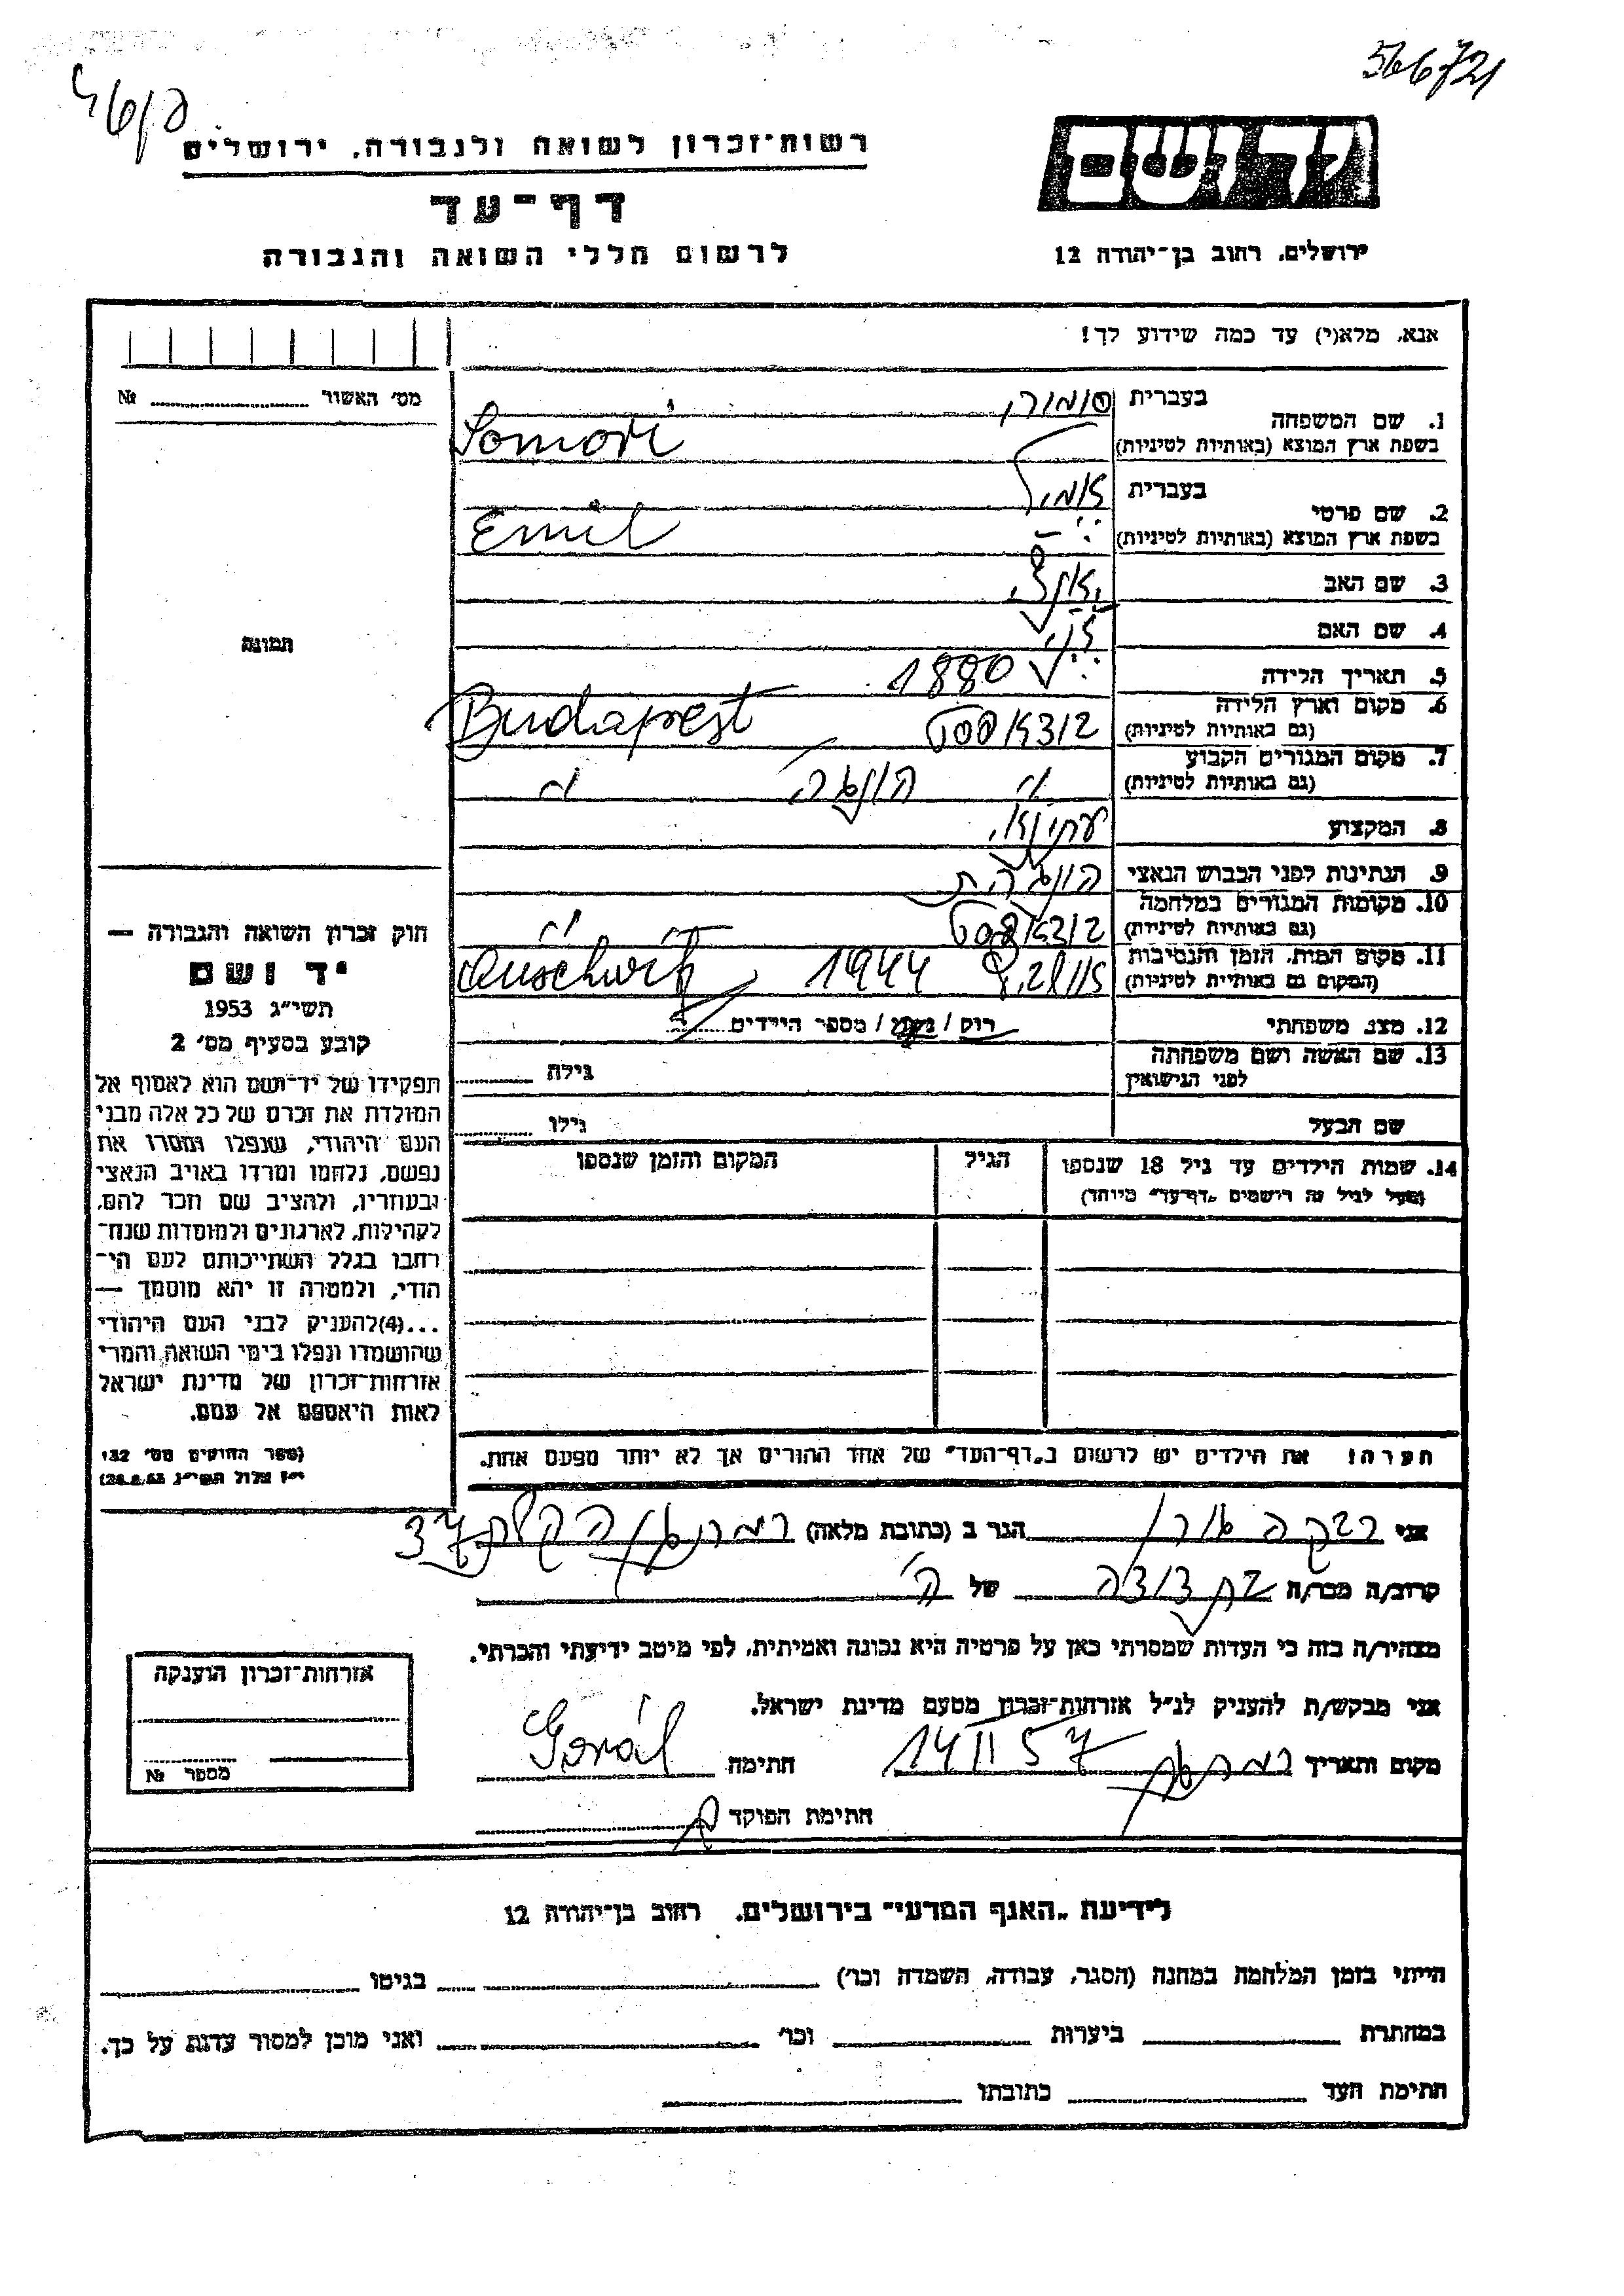 566721
רשות־זכרון לשואה ולגבורה, ירושלים
דף־עד
לרשום חללי השואה והגבורה
יד ושם
ירושלים, רחוב בן־יהודה 12
אנא, מלא(י) עד כמה שידוע לך!
מס׳ האשור №
תמונה
1. שם המשפחה
בעברית סומורי
בשפת ארץ המוצא (באותיות לטיניות) Somori
2. שם פרטי
בעברית אמיל
בשפת ארץ המוצא (באותיות לטיניות) Emil
3. שם האב
4. שם האם
5. תאריך הלידה 1880
6. מקום וארץ הלידה
(גם באותיות לטיניות) בודפסט Budapest
7. מקום המגורים הקבוע
(גם באותיות לטיניות) " הונגריה "
8. המקצוע עתונאי
9. הנתינות לפני הכבוש הנאצי הונגרית
10. מקומות המגורים במלחמה
(גם באותיות לטיניות) בודפסט " "
11. מקום המות, הזמן והנסיבות
(המקום גם באותיות לטיניות) אושויץ 1944 Auschwitz
12. מצב משפחתי רוק / נשוי / מספר הילדים
13. שם האשה ושם משפחתה
לפני הנישואין גילה
שם הבעל גילו
14. שמות הילדים עד גיל 18 שנספו הגיל המקום והזמן שנספו
(מעל לגיל זה רושמים „דף־עד" מיוחד)
הערה! את הילדים יש לרשום ב„דף־העד" של אחד ההורים אך לא יותר מפעם אחת.
חוק זכרון השואה והגבורה —
יד ושם
תשי״ג 1953
קובע בסעיף מס׳ 2
תפקידו של יד־ושם הוא לאסוף אל
המולדת את זכרם של כל אלה מבני
העם היהודי, שנפלו ומסרו את
נפשם, נלחמו ומרדו באויב הנאצי
ובעוזריו, ולהציב שם וזכר להם,
לקהילות, לארגונים ולמוסדות שנח־
רבו בגלל השתייכותם לעם הי־
הודי, ולמטרה זו יהא מוסמך —
...(4)להעניק לבני העם היהודי
שהושמדו ונפלו בימי השואה והמרי
אזרחות־זכרון של מדינת ישראל
לאות היאספם אל עמם.
(ספר החוקים מס׳ 132
י״ז אלול תשי״ג 28.8.53)
אני רבקה גורן הגר ב (כתובת מלאה) רמת גן 37
קרוב/ה מכר/ה בת דודה של ה׳
מצהיר/ה בזה כי העדות שמסרתי כאן על פרטיה היא נכונה ואמיתית, לפי מיטב ידיעתי והכרתי.
אני מבקש/ת להעניק לנ״ל אזרחות־זכרון מטעם מדינת ישראל.
מקום ותאריך רמת גן 14 II 57 חתימה
חתימת הפוקד
אזרחות־זכרון הוענקה
מספר №
לידיעת „האגף המדעי" בירושלים, רחוב בן־יהודה 12
הייתי בזמן המלחמה במחנה (הסגר, עבודה, השמדה וכו׳) בגיטו
במחתרת ביערות וכו׳ ואני מוכן למסור עדות על כך.
חתימת העד כתובתו